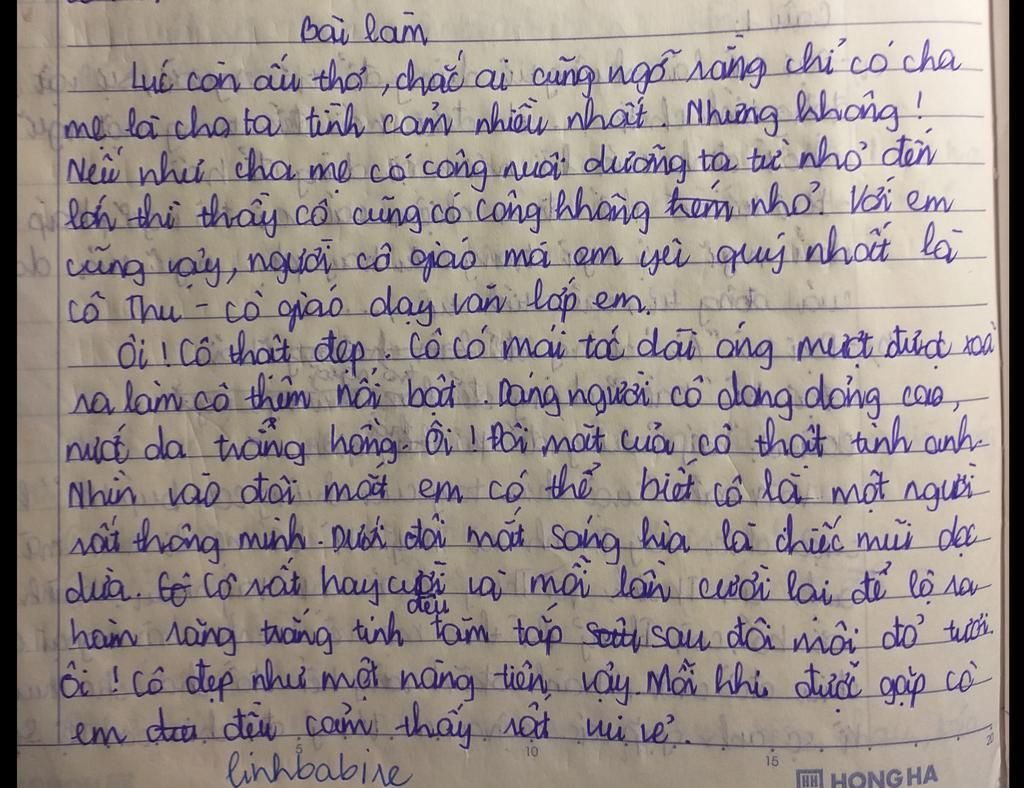 Bài làm
Lúc còn ấu thơ, chắc ai cũng ngỡ rằng chỉ có cha
mẹ là cho ta tình cảm nhiều nhất. Nhưng không!
Nếu như cha mẹ có công nuôi dưỡng ta từ nhỏ đến
lớn thì thầy cô cũng có công không nhỏ. Với em
cũng vậy, người cô giáo mà em yêu quý nhất là
cô Thu - cô giáo dạy văn lớp em.
Ôi! Cô thật đẹp. Cô có mái tóc dài óng mượt được xoã
ra làm cô thêm nổi bật. Dáng người cô dong dỏng cao,
nước da trắng hồng. Ôi! Đôi mắt của cô thật tinh anh.
Nhìn vào đôi mắt em có thể biết cô là một người
rất thông minh. Dưới đôi mắt sáng kia là chiếc mũi dọc
dừa. Cô rất hay cười và mỗi lần cười lại để lộ ra
hàm răng trắng tinh đều tăm tắp sau đôi môi đỏ tươi.
Ôi! Cô đẹp như một nàng tiên vậy. Mỗi khi được gặp cô
em đều cảm thấy rất vui vẻ.
5 10 15 20
linhbabine
HH HONG HA